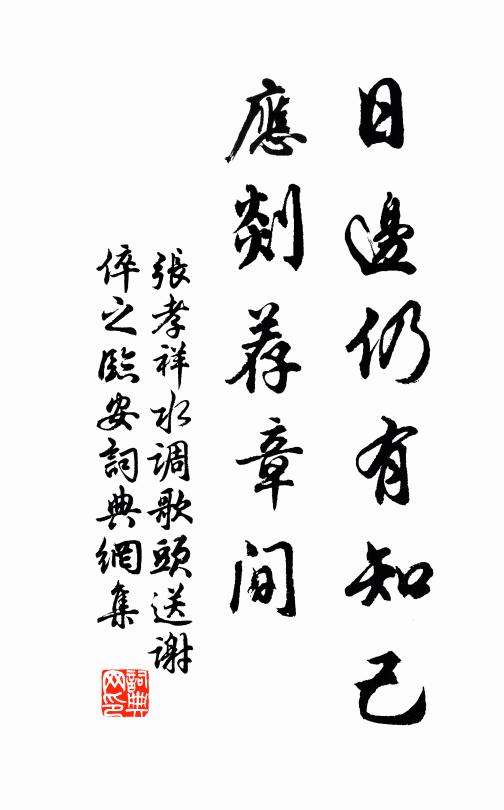 日邊仍有知己
應剡荐章間
張孝祥水调歌頭送謝
倅之臨安詞典網集
詞典网印